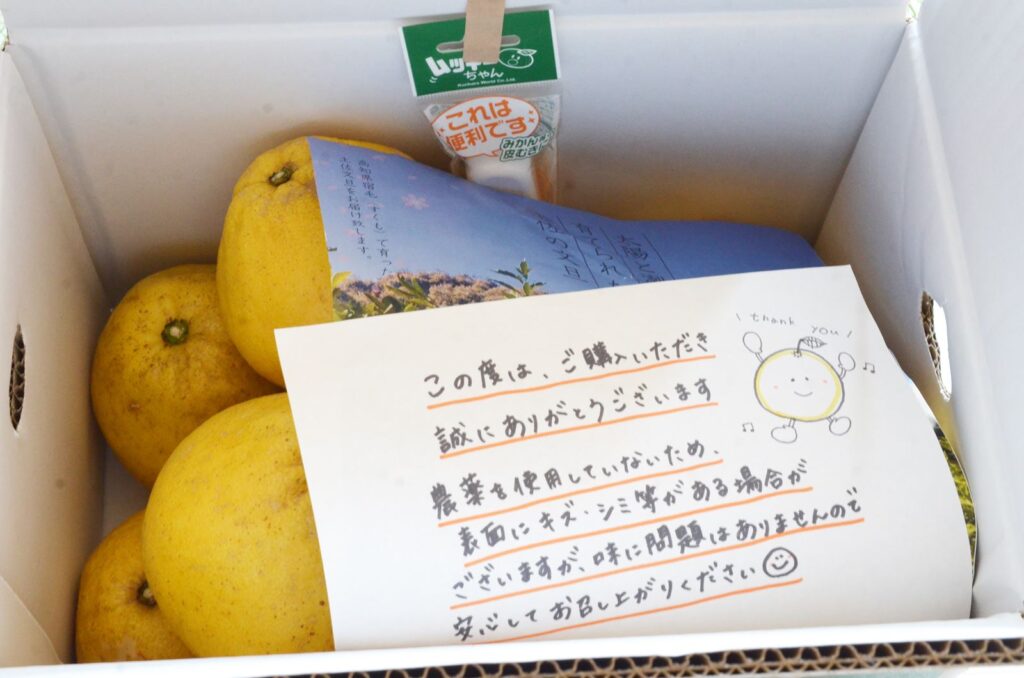 ムッキー
ちゃん
これは
便利です
みかんの
皮むき
高知県宿毛(すくも)で育った
土佐文旦をお届け致します。
太陽と
育てられ
の文旦
\ thank you /
この度は、ご購入いただき
誠にありがとうございます
農薬を使用していないため、
表面にキズ・シミ等がある場合が
ございますが、味に問題はありませんので
安心してお召し上がりください